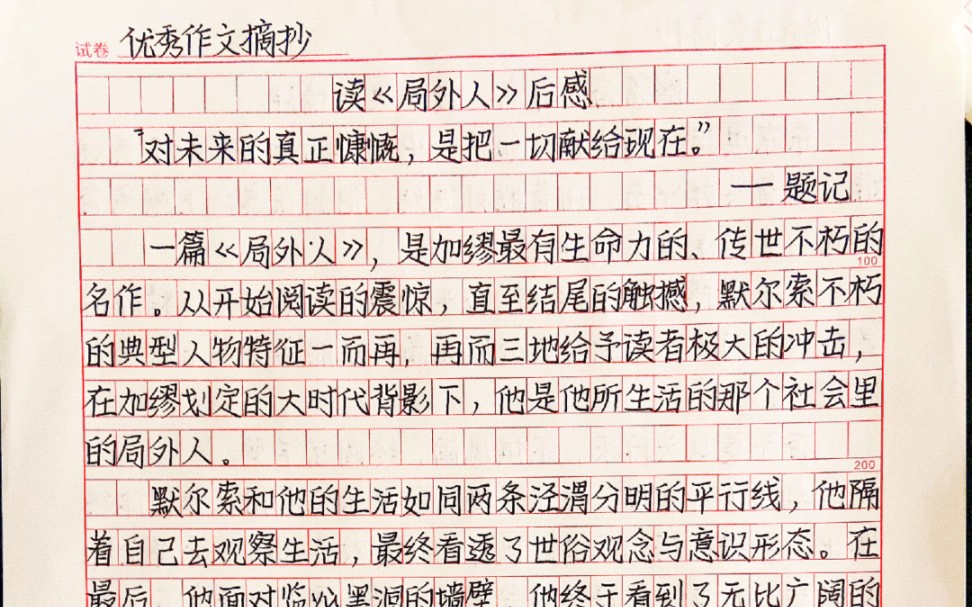 试卷 优秀作文摘抄
读《局外人》后感
“对未来的真正慷慨，是把一切献给现在。”
——题记
一篇《局外人》，是加缪最有生命力的、传世不朽的
100
名作。从开始阅读的震惊，直至结尾的触撼，默尔索不朽
的典型人物特征一而再，再而三地给予读者极大的冲击，
在加缪划定的大时代背影下，他是他所生活的那个社会里
的局外人。
200
默尔索和他的生活如同两条泾渭分明的平行线，他隔
着自己去观察生活，最终看透了世俗观念与意识形态。在
最后，他面对监狱黑洞的墙壁，他终于看到了无比广阔的